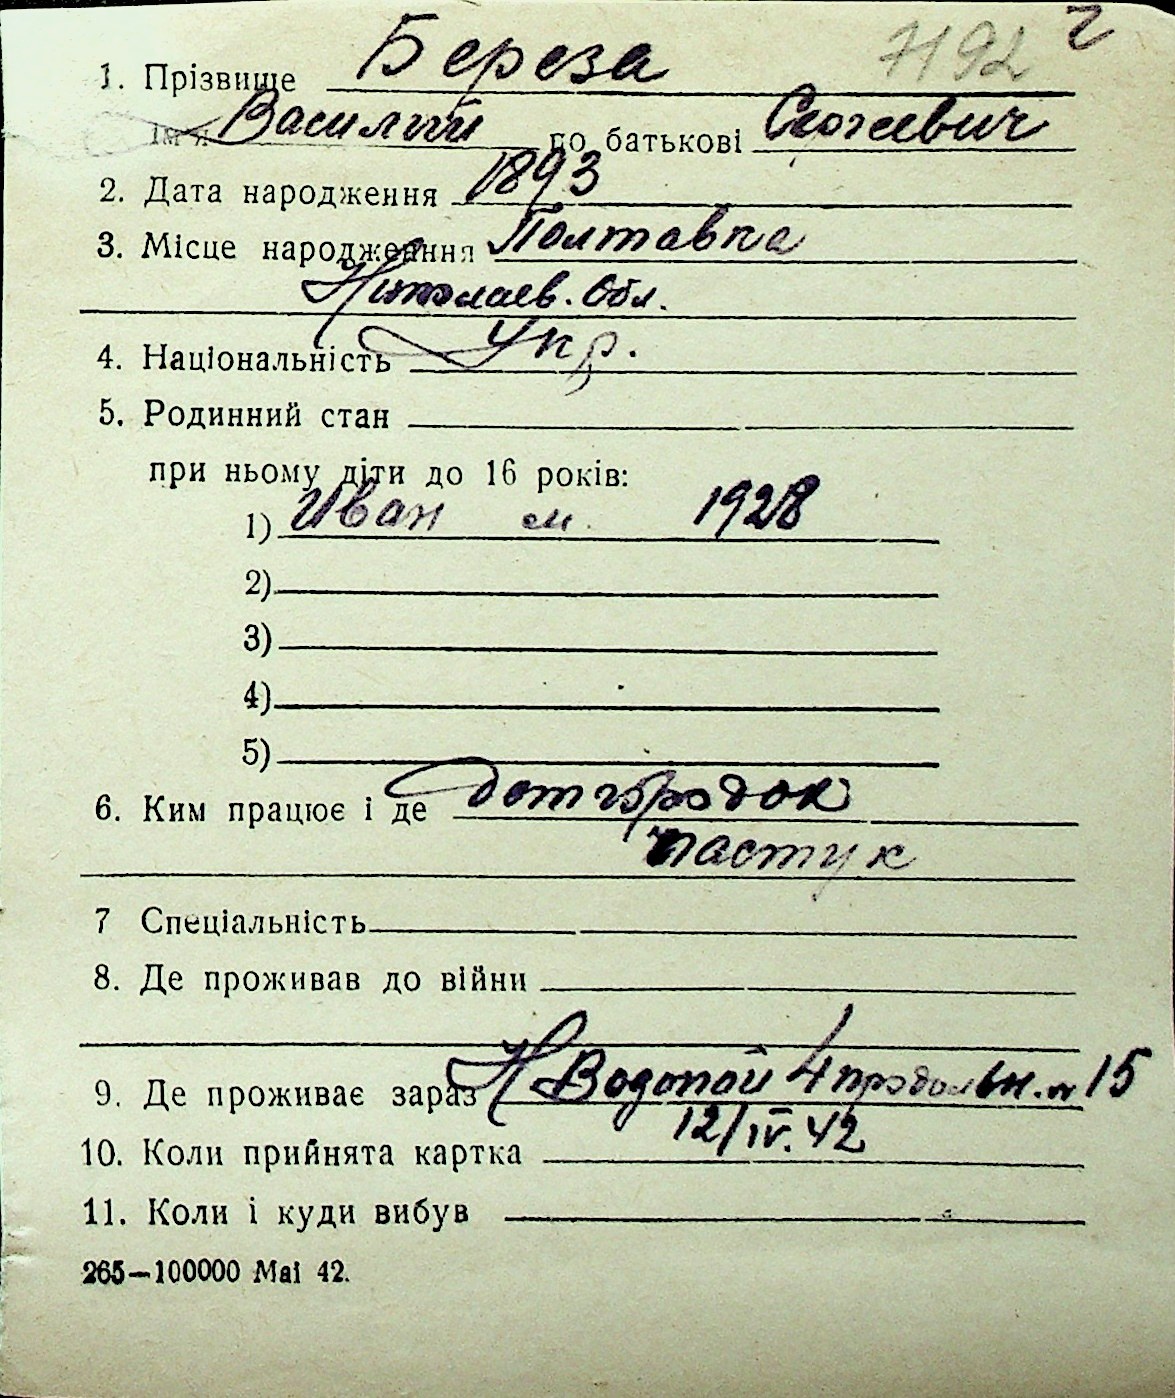 7192 2
1. Прізвище Береза
Ім'я Василий по батькові Сергеевич
2. Дата народження 1893
3. Місце народження Полтавка
Николаев. Обл.
4. Національність Укр.
5. Родинний стан
при ньому діти до 16 років:
1) Иван м. 1928
2)
3)
4)
5)
6. Ким працює і де городок
пастух
7 Спеціальність
8. Де проживав до війни
9. Де проживає зараз Н Водопой 4 продольн. 15
10. Коли прийнята картка 12/IV.42
11. Коли і куди вибув
265—100000 Mai 42.